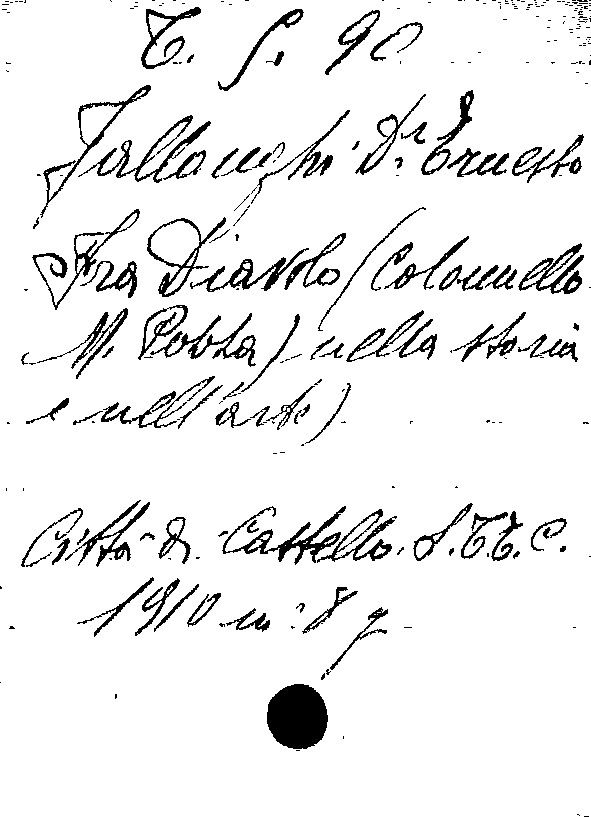 T. S. 90
Jallonghi Dr. Ernesto
Fra Diavolo (Colonnello
M. Pezza) nella storia
e nell'arte)
Città di Castello. S.T.T.C.
1910 in: 8